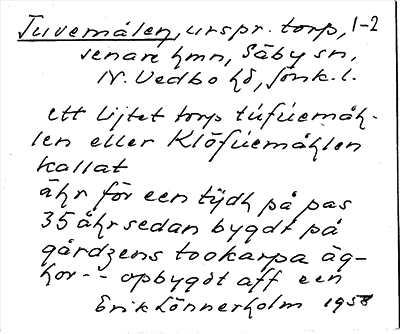 Tuvemålen, urspr. torp, 1-2
senare hmn, Säby sn,
N. Vedbo hd, Jönk. l.
ett lijtet torp túfúemåh-
len eller Klöfúemåhlen
kallat
ähr för een tijdh på pas
35 åhr sedan bygdt på
gårdzens tookarpa äg-
hor -- opbygdt aff een
Erik Lönnerholm 1958